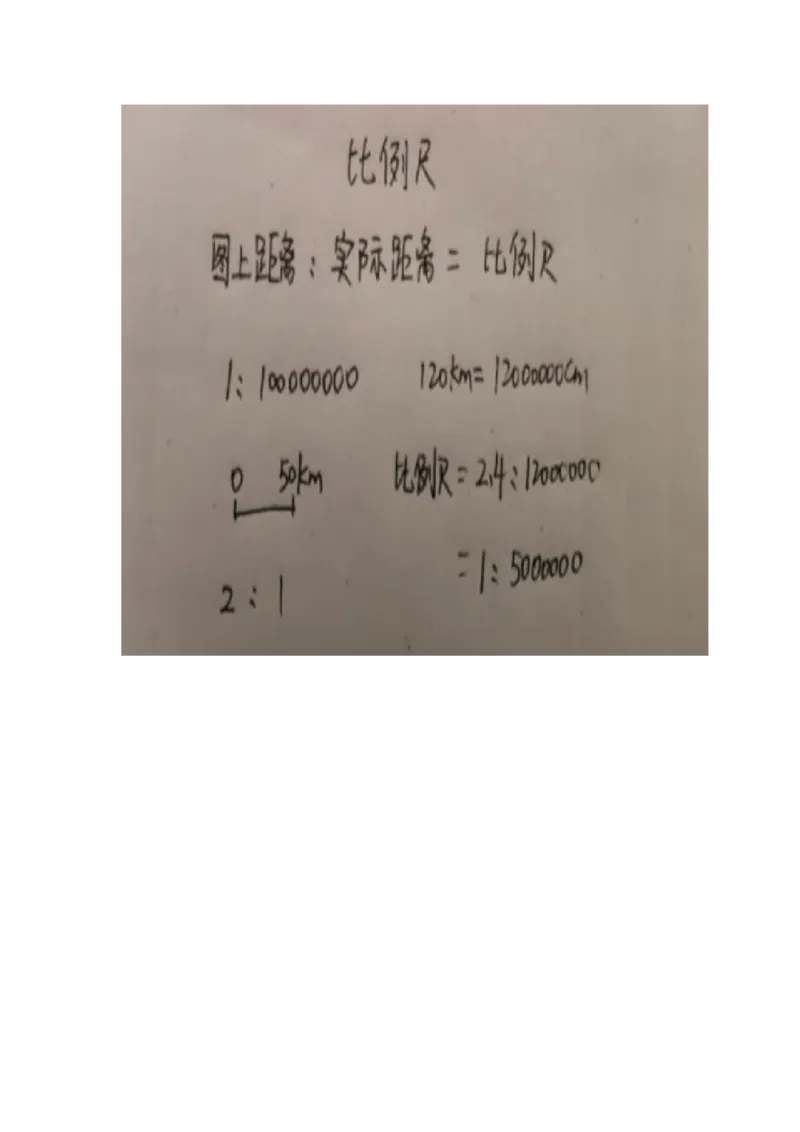 比例尺
图上距离：实际距离＝比例尺
1：100000000 120km＝12000000cm
0 50km 比例尺＝2.4：12000000
＝1：5000000
2：1